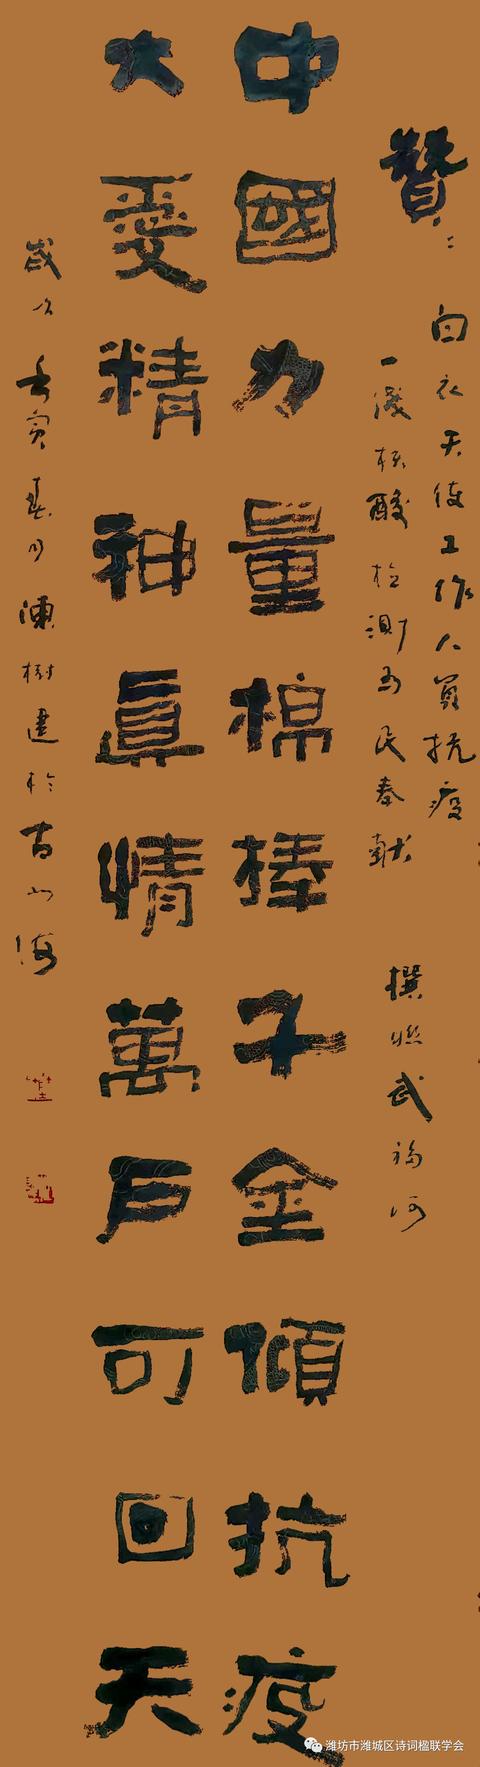 贊：
白衣天使工作人員抗疫
一綫核酸检測為民奉献
撰聯武福河
中國力量棉棒千金傾抗疫
大愛精神眞情萬戶可回天
歲次壬寅春月陳樹建於古山海
潍坊市潍城区诗词楹联学会